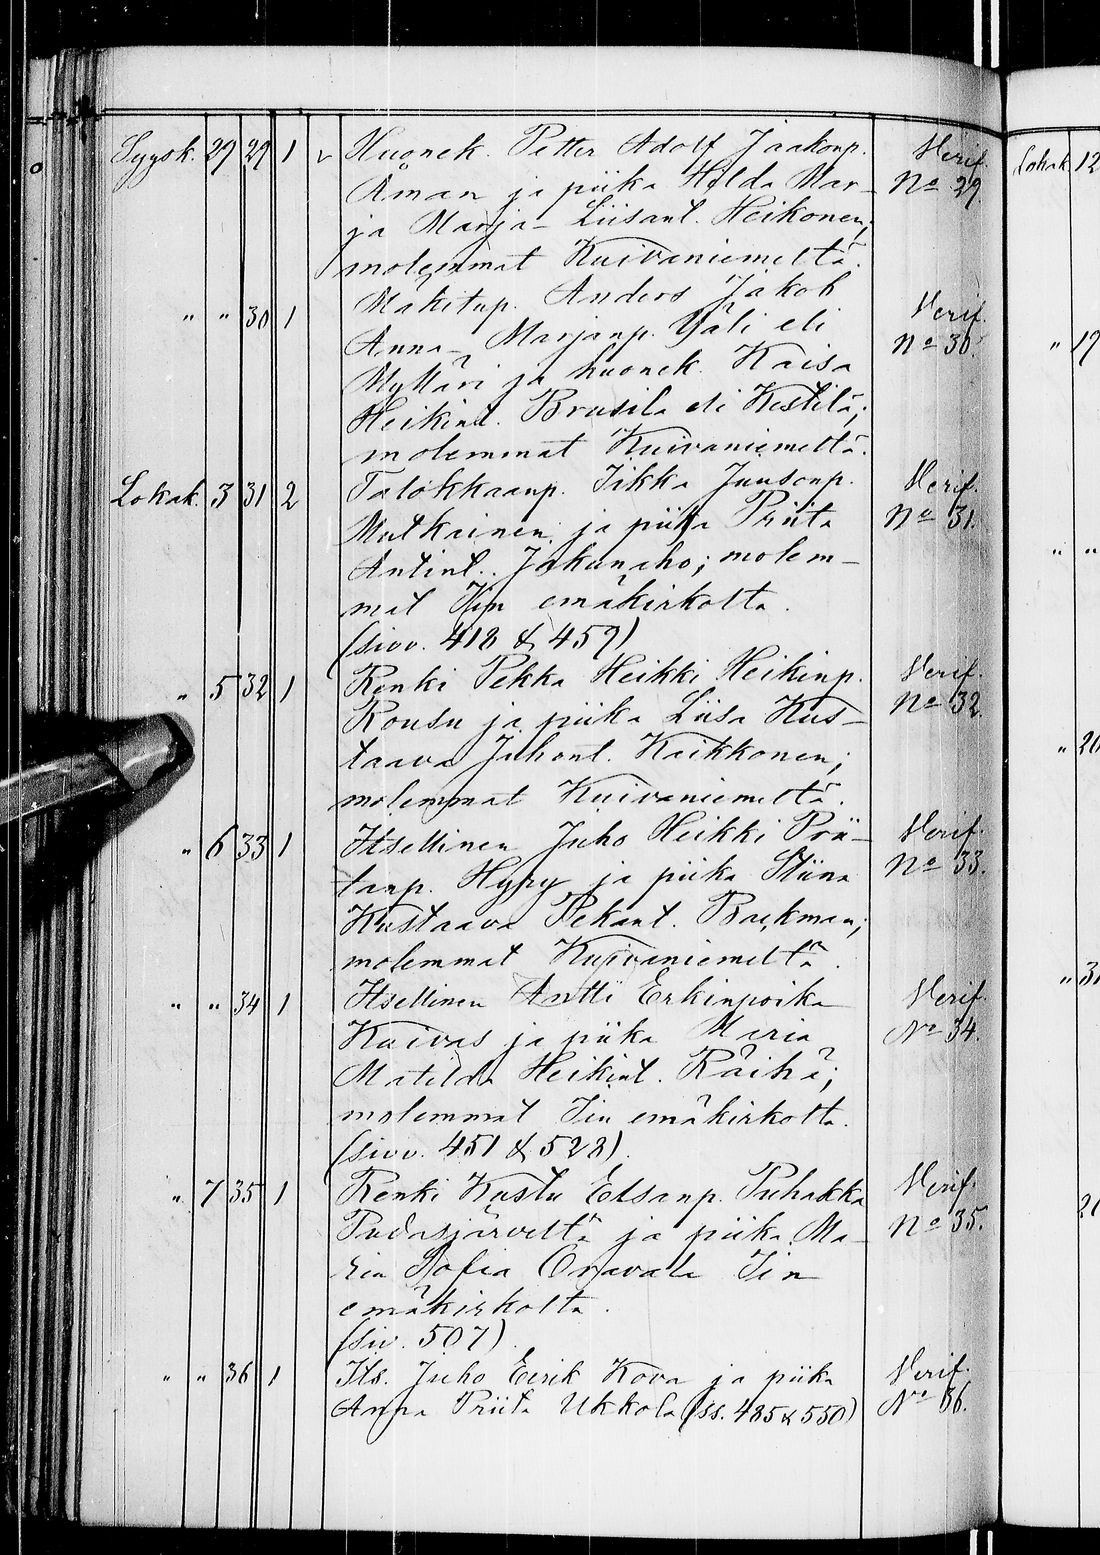 Syysk. 29 29 1 v Huonek. Petter Adolf Jaakonp. Verif.
Åman ja piika Hilda Mar- No 29.
ja Marja-Liisant. Heikonen;
molemmat Kuivaniemeltä.
" " 30 1 Mäkitup. Anders Jakob Verif.
Anna-Marjanp. Yäli eli No 30.
Mylläri ja huonek. Kaisa
Heikint. Brusila eli Kestilä;
molemmat Kuivaniemeltä.
Lokak. 3 31 2 Talokkaanp. Iikka Juusonp. Verif.
Matkainen ja piika Priita No 31.
Antint. Jakunaho; molem-
mat Iin emäkirkolta.
(sivv. 418 & 459)
" 5 32 1 Renki Pekka Heikki Heikinp. Verif.
Rousu ja piika Liisa Kus- No 32.
taava Juhont. Kaikkonen;
molemmat Kuivaniemeltä.
" 6 33 1 Itsellinen Juho Heikki Prii- Verif.
tanp. Hypy ja piika Stiina No 33.
Kustaava Pekant. Backman;
molemmat Kuivaniemeltä.
" " 34 1 Itsellinen Antti Erkinpoika Verif.
Kaivas ja piika Maria No 34.
Matilda Heikint. Räihä;
molemmat Iin emäkirkolta.
(sivv. 451 & 528).
" 7 35 1 Renki Kustu Elsanp. Puhakka Verif.
Pudasjärveltä ja piika Ma- No 35.
ria Sofia Oravala Iin
emäkirkolta.
(siv. 507)
" " 36 1 Its. Juho Eerik Kova ja piika Verif.
Anna Priita Ukkola (ss. 485 & 550) No 36.
Lokak. 12
" 19
" "